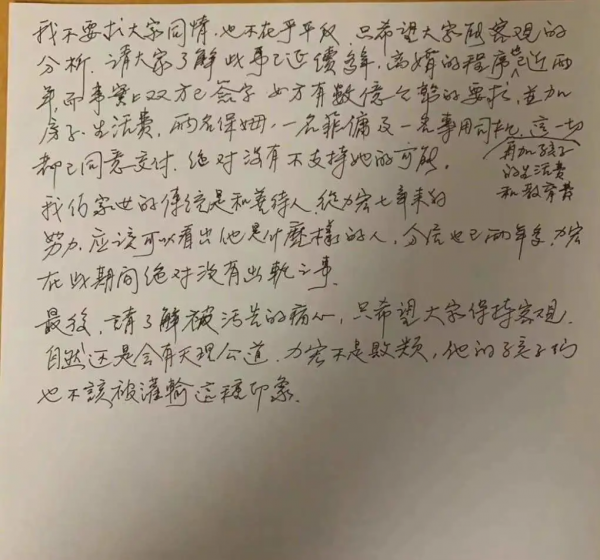 我不要求大家同情，也不在乎平反，只希望大家能客观的
分析，请大家了解此事已延續多年，离婚的程序也已近兩
年，而事實上双方已簽字，女方有數億金額的要求，並加
房子、生活費，兩名保姆，一名菲傭及一名專用司机，這一切
再加孩子
的生活費
和教育費
都已同意支付，绝对没有不支持她的可能。
我们家世的傳統是和善待人，從力宏七年來的
努力，应該可以看出他是什麽樣的人，分居也已兩年多，力宏
在此期间绝对没有出軌之事。
最後，請了解被污苦的痛心，只希望大家保持客观，
自然还是会有天理公道，力宏不是敗類，他的孩子们
也不該被灌輸这種印象。